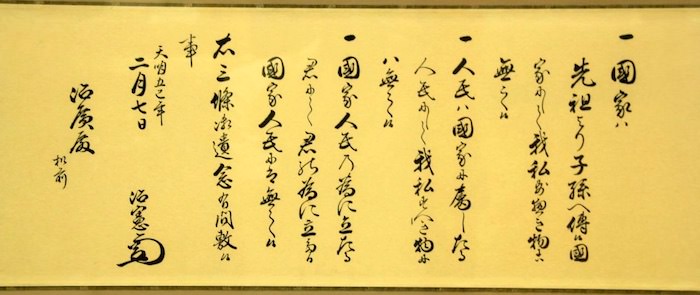 一 國家ハ
先祖より子孫へ傳候國
家にして我私すへき物にハ
無之候
一 人民ハ國家に属したる
人民にして我私すへき物に
ハ無之候
一 國家人民の為に立たる
君にし而君の為に立たる
國家人民にハ無之候
右三條御遺念有間敷候
事
天明五巳年
二月七日
治憲
治廣殿
机前